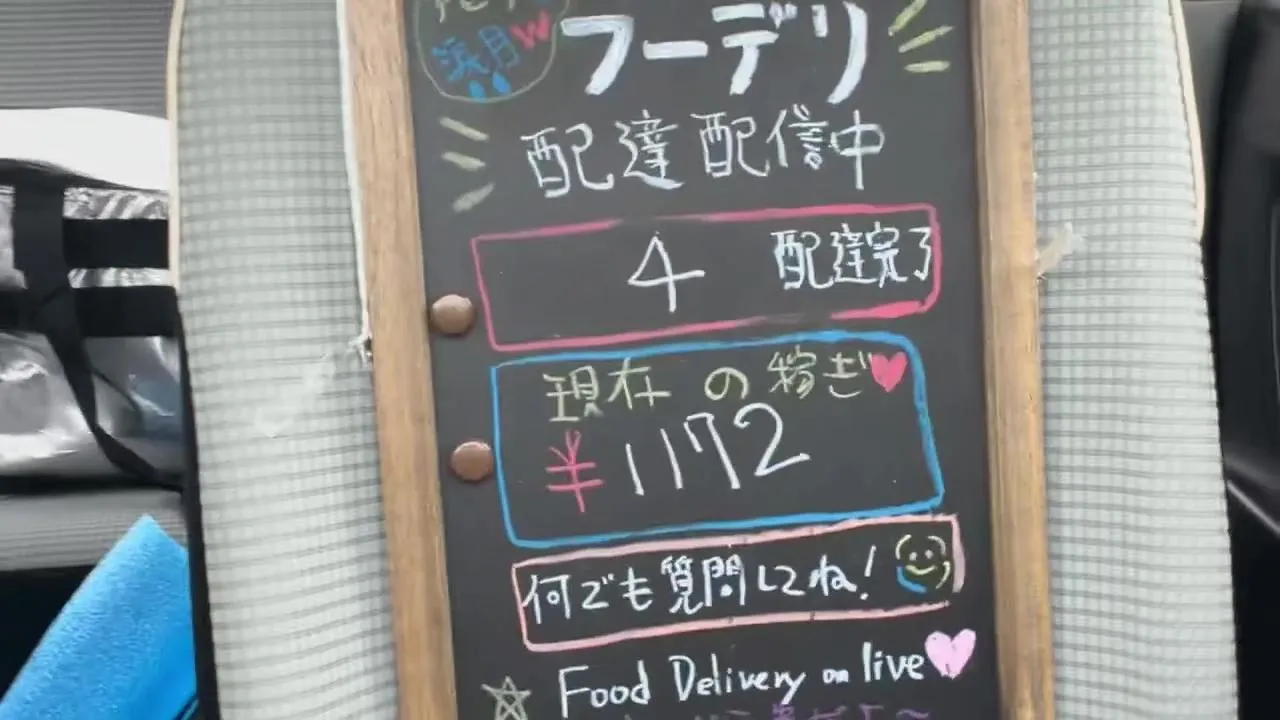 涙月w
フーデリ
配達配信中
4 配達完了
現在の稼ぎ
¥1172
何でも質問してね!
Food Delivery on live